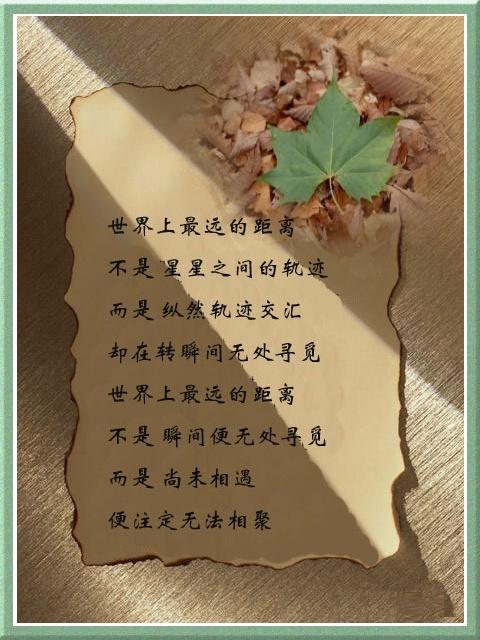 世界上最远的距离
不是 星星之间的轨迹
而是 纵然轨迹交汇
却在转瞬间无处寻觅
世界上最远的距离
不是 瞬间便无处寻觅
而是 尚未相遇
便注定无法相聚